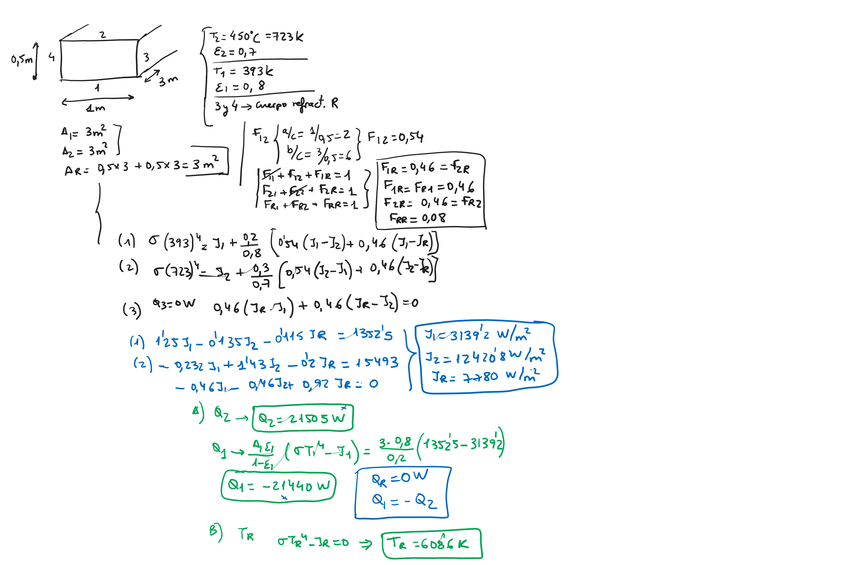 2
0,5m
4
3
1
3m
1m
T2 = 450°C = 723 K
ε2 = 0,7
T1 = 393 K
ε1 = 0,8
3 y 4 → cuerpo refract. R
A1 = 3m²
A2 = 3m²
AR = 0,5x3 + 0,5x3 = 3m²
F12 { a/c = 1/0,5 = 2
b/c = 3/0,5 = 6 } F12 = 0,54
F11 + F12 + F1R = 1
F21 + F22 + F2R = 1
FR1 + FR2 + FRR = 1
F1R = 0,46 = F2R
F1R = FR1 = 0,46
F2R = 0,46 = FR2
FRR = 0,08
(1) σ(393)⁴ = J1 + 0,2/0,8 [0'54 (J1-J2) + 0,46 (J1-JR)]
(2) σ(723)⁴ = J2 + 0,3/0,7 [0,54 (J2-J1) + 0,46 (J2-JR)]
(3) Q3=0W 0,46 (JR-J1) + 0,46 (JR-J2) = 0
(1) 1'25J1 - 0'135J2 - 0'115 JR = 1352'5
(2) - 0,232 J1 + 1'43 J2 - 0'2 JR = 15493
- 0,46J1 - 0,46J2 + 0,92 JR = 0
J1 = 3139'2 W/m²
J2 = 12420'8 W/m²
JR = 7780 W/m²
A) Q2 → Q2 = 21505 W
Q1 → A1ε1/1-ε1 (σT1⁴ - J1) = 3·0,8/0,2 (1352'5 - 3139'2)
Q1 = -21440 W
QR = 0 W
Q1 = - Q2
B) TR σTR⁴ - JR = 0 ⇒ TR = 608'6 K